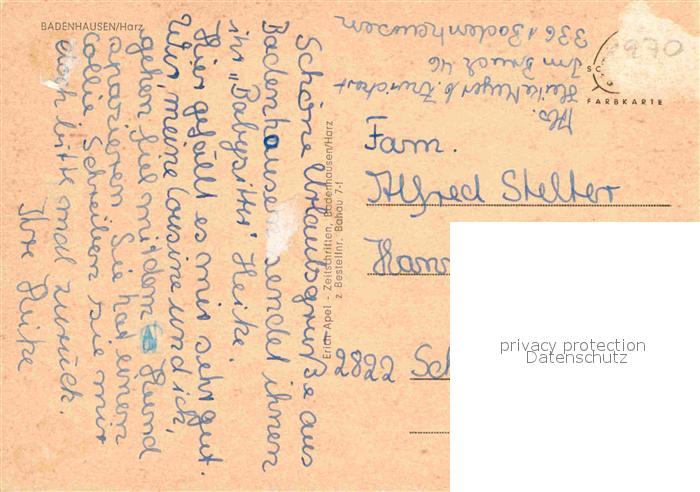 BADENHAUSEN/Harz
Schöne Urlaubsgrüße aus
Badenhausen sendet ihnen
ihr „Babysitter" Heike.
Hier gefällt es mir sehr gut.
Wir, meine Cousine und ich,
gehen viel mit dem Hund
spazieren. Sie hat einen
Collie. Schreiben sie mir
doch bitte mal zurück.
Ihre Heike
Erich Apel - Zeitschriften, Badenhausen/Harz
z Bestellnr. Bahau 7-1
Abs.
Heike Meyer b.
Im Bruch 46
3361 Badenhausen
1970
FARBKARTE
Fam.
Alfred Stelter
Hann
2822 Sch
privacy protection
Datenschutz